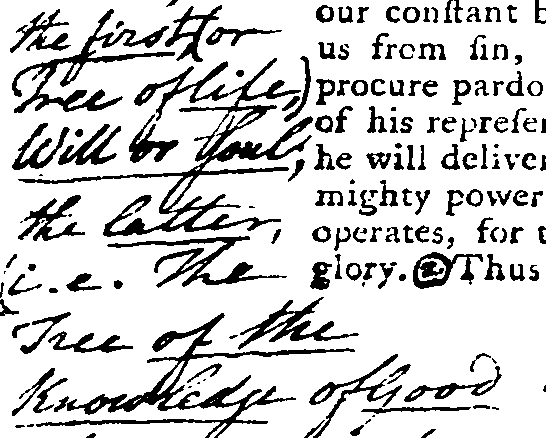 the first, (or
Tree of life,)
Will or Soul;
the latter,
(i.e. The
Tree of the
Knowledge of Good
our constant
us from ſin,
procure
of his
he will
mighty power
operates, for
glory. (2) Thus